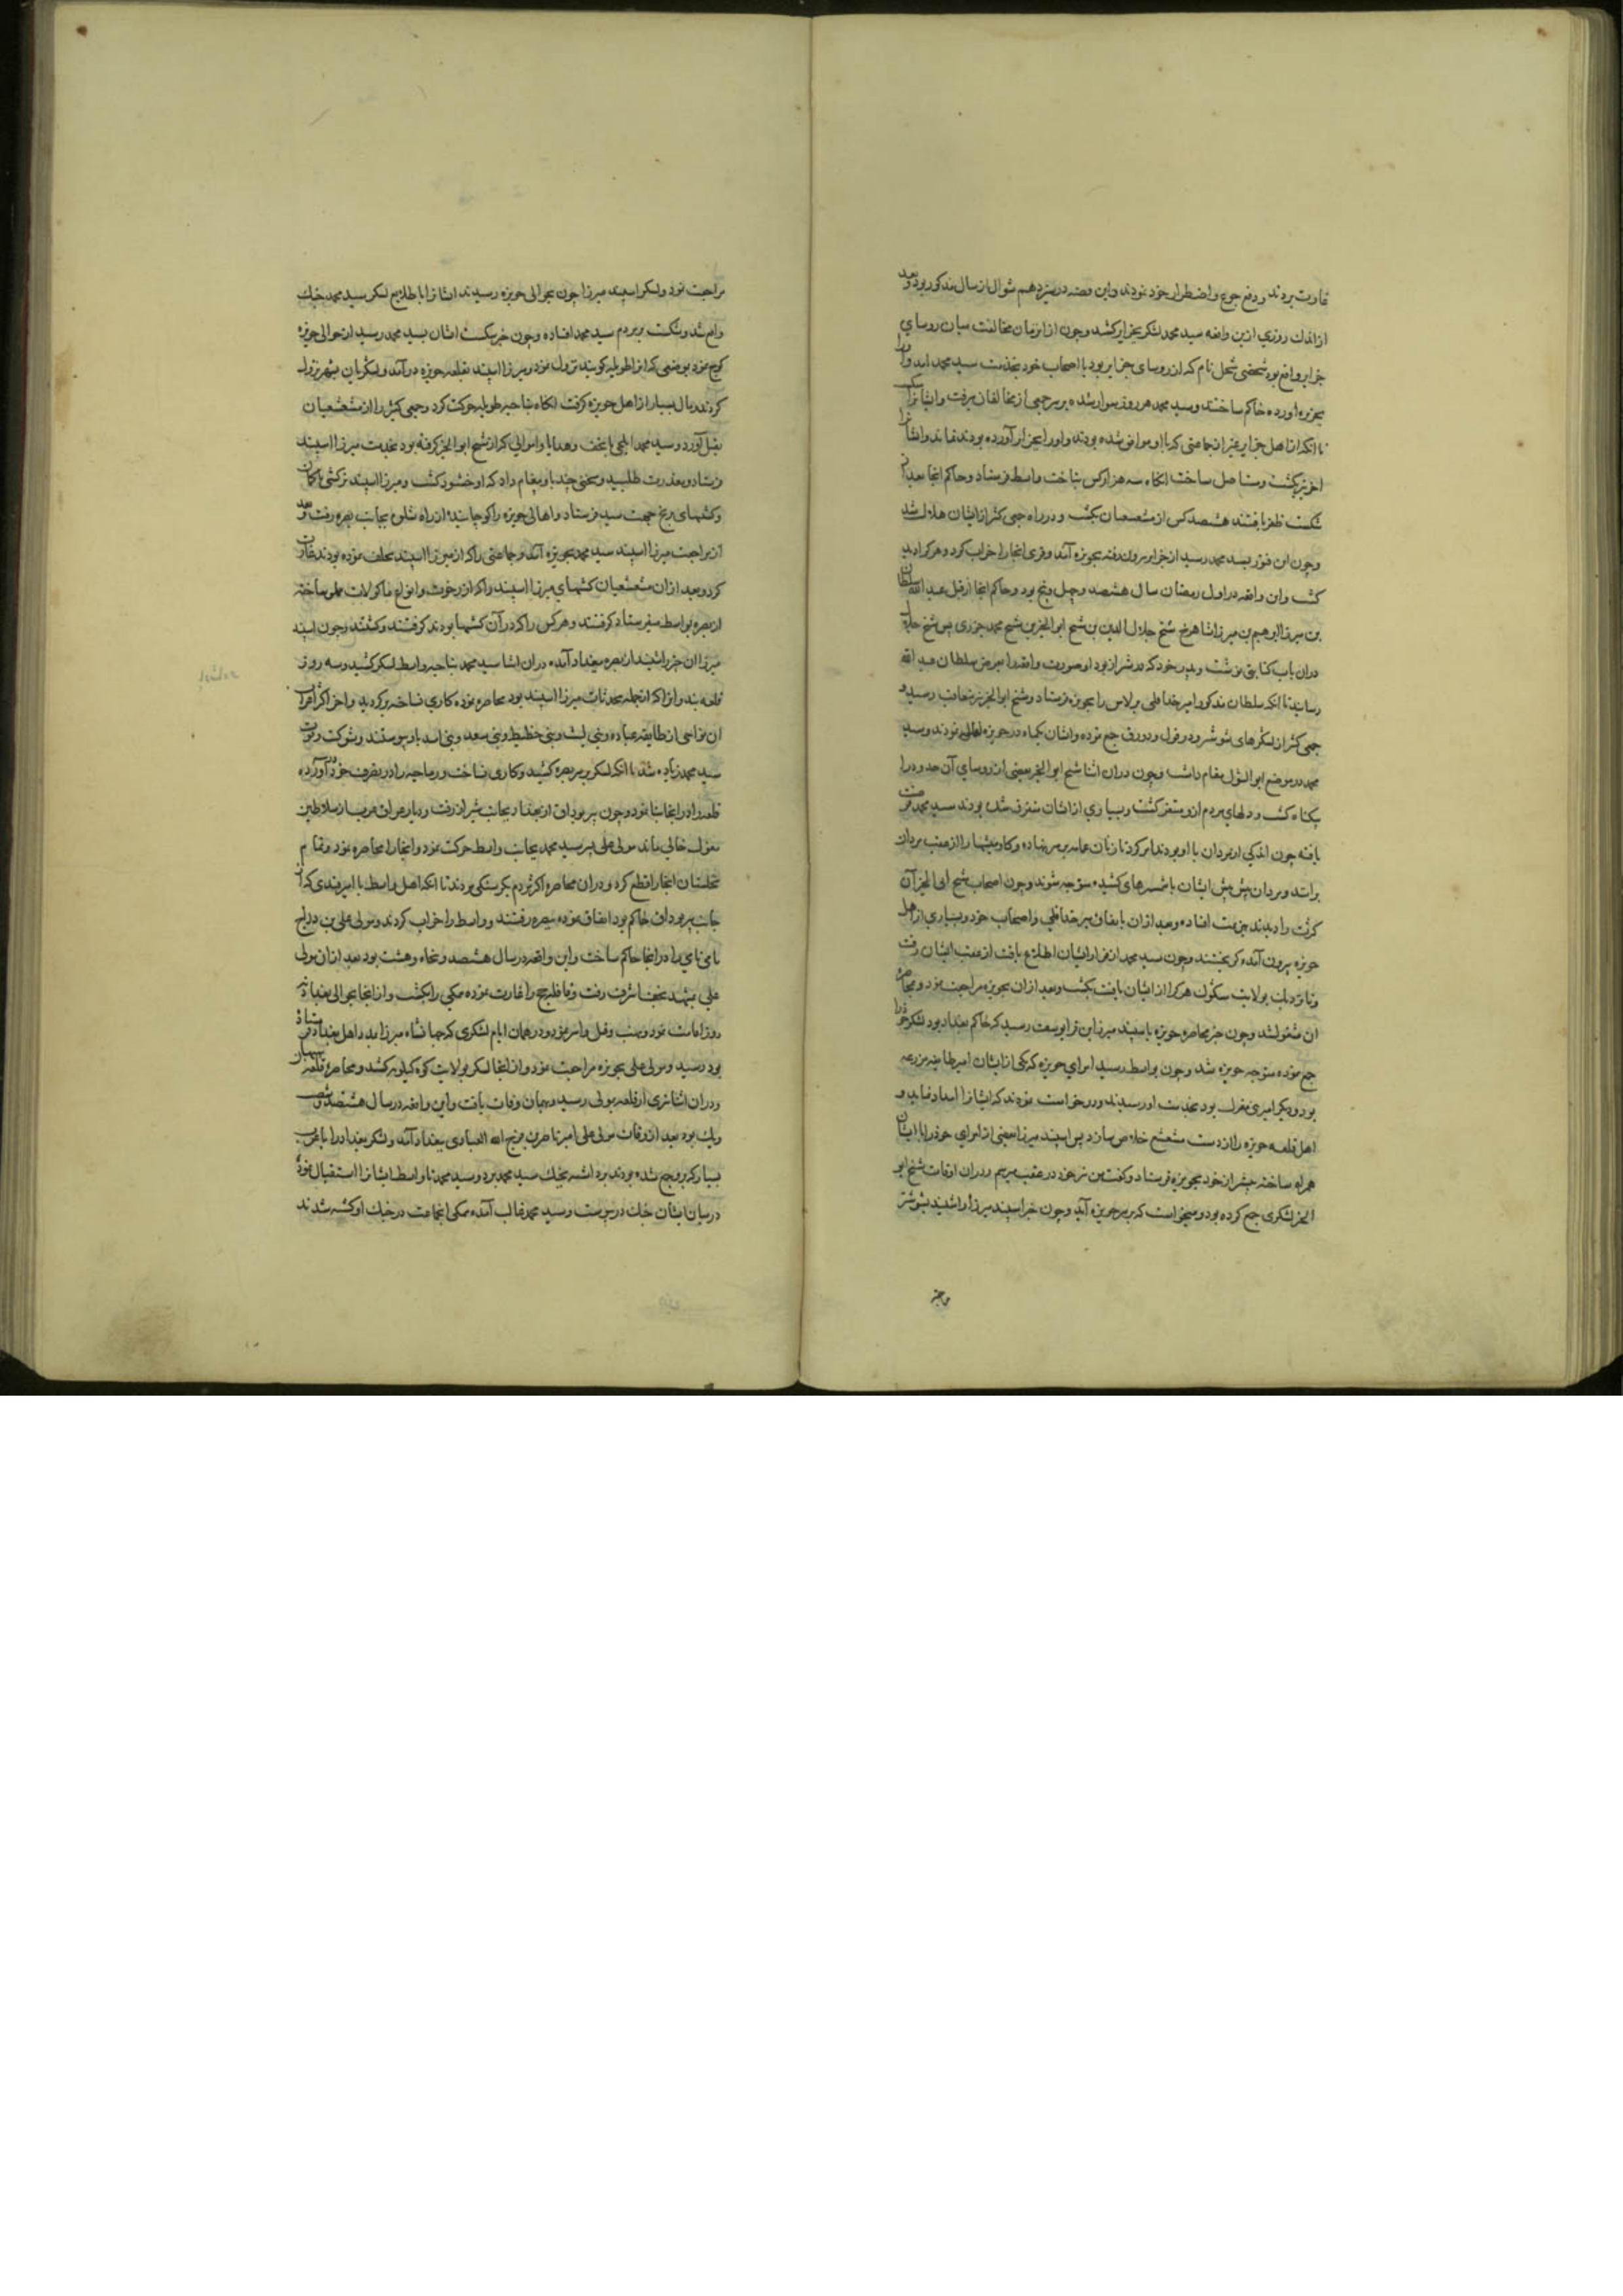 غارت بردند و دفع جوع و اضطرار خود نمودند و این قصه در سیزدهم شوال از سال مذکور بود و بعد
از اندک روزی ازین واقعه سید محمد لشکر بجزایر کشید و چون از ان زمان مخالفت میان روسای
جزایر واقع بود شخصی شحل نام که از روسای جزایر بود با اصحاب خود بخدمت سید محمد آمد و او را
بجزیره آورده حاکم ساختند و سید محمد هر روز سوار شده بر سر جمعی از مخالفان میرفت و ایشانرا
تا انکه از اهل جزایر بغیر از جماعتی که با او موافق شده بودند و او را بجزایر آورده بودند نماند و ایشانرا
آخر نیز بکشت و مستاصل ساخت انکاه سه هزار کس بناحیت واسط فرستاد و حاکم انجا بعد از
شکست ظفر یافتند هشصد کس از مشعشعیان بکشت و در راه جمعی کثیر از ایشان هلاک شد
و چون این فتور بسید محمد رسید از جزایر بیرون رفته بحویزه آمد و قری انجا را خراب کرد و هر کرا دید
کشت و این واقعه در اول رمضان سال هشصد و چهل و پنج بود و حاکم انجا از قبل عبد الله سلطان
بن میرزا ابرهیم بن میرزا شاهرخ شیخ جلال الدین بن شیخ ابو الخیر بن شیخ محمد جزری پس شیخ جلال
دران باب کتابتی نوشت و پدر خود که در شیراز بود او صورت واقعه را بعرض سلطان عبد الله
رسانید تا انکه سلطان مذکور امیر خدا قلی برلاس را بحویزه فرستاد و شیخ ابو الخیر نیز متعاقب رسید و
جمعی کثیر از لشکرهای شوشتر و دزفول و دورق جمع نموده و ایشان یکماه در حویزه نمودند و سید
محمد در موضع ابو الشول مقام داشت و چون دران اثنا شیخ ابو الخیر بعضی از روسای آن حدود را
بیکناه کشت و دلهای مردم ازو متنفر کشت و بسیاری از ایشان متفرق شدند سید محمد فرصت
یافته چون اندکی از مردان با او بودند امر کرد تا زنان عمامه بر سر نهاده و کاومیشها را از عقب مردان
برانند و مردان پیش پیش ایشان با شمشیرهای کشیده متوجه شوند و چون اصحاب شیخ ابی الخیر آن
کثرت را دیدند هزیمت افتاده و بعد از ان باتفاق میر خدا قلی و اصحاب خود و بسیاری از اهل
حویزه بیرون آمده کریختند و چون سید محمد از فرار ایشان اطلاع یافت از عقب ایشان رفت
و تا نزدیک بولایت سکون هر کرا از ایشان یافت بکشت و بعد از ان بحویزه مراجعت نمود و بمحاصره
ان مشغول شد و چون خبر محاصره حویزه باسپند میرزا بن قرا یوسف رسید که حاکم بغداد بود لشکر خود را
جمع نموده متوجه حویزه شد و چون بواسط رسید امرای حویزه که یکی از ایشان امیر طایفه مزرعه
بود و دیکر امیری مغول بود بخدمت او رسیدند و درخواست نمودند که ایشانرا امداد نماید و
اهل قلعه حویزه را از دست مشعشع خلاص سازد پس اسپند میرزا بعضی از امرای خود را با ایشان
همراه ساخته پیشتر از خود بحویزه فرستاد و کفت من نیز خود در عقب میرسم و دران اوقات شیخ ابو
الخیر لشکری جمع کرده بود و میخواست که بر سر حویزه آید و چون خبر اسپند میرزا را شنید بشوشتر
مراجعت نمود و لشکر اسپند میرزا چون بحوالی حویزه رسیدند ایشانرا با طلایع لشکر سید محمد جنک
واقع شد و شکست بر مردم سید محمد افتاده و چون خبر شکست ایشان بسید محمد رسید از حوالی حویزه
کوچ نمود بموضعی که انرا طویله کویند نزول نمود و میرزا اسپند بقلعه حویزه در آمد و لشکریان بشهر نزول
کردند و مال بسیار از اهل حویزه کرفت انکاه بناحیه طویله حرکت کرد و جمعی کثیر را از مشعشعیان
بقتل آورد و سید محمد ایلچی با تحف و هدایا و اموالی که از شیخ ابو الخیر کرفته بود بخدمت میرزا اسپند
فرستاد و معذرت طلبید و سخنی چند باو پیغام داد که او خشنود کشت و میرزا اسپند ترکشی با کمان
و کشتیهای برنج جهت سید فرستاد و اهالی حویزه را کوچانیده از راه شلوی بجانب بصره رفت و بعد
از مراجعت میرزا اسپند سید محمد بحویزه آمد و جماعتی را که از میرزا اسپند تخلف نموده بودند غارت
کرد و بعد از ان مشعشعیان کشتیهای میرزا اسپند را که از رخوت و انواع ماکولات مملو ساخته
از بصره بواسط میفرستاد کرفتند و هر کس را که در آن کشتیها بودند کرفتند و کشتند و چون اسپند
میرزا ان خبر را شنید از بصره ببغداد آمده دران اثنا سید محمد بناحیه واسط لشکر کشید و سه روز
قلعه بندوان را که از جمله محدثات میرزا اسپند بود محاصره نموده کاری نساخته برکردید و آخر اکثر اعراب
ان نواحی از طایفه عباده و بنی لیث و بنی حطیط و بنی سعد و بنی اسد باو پیوستند و شوکت و قوت
سید محمد زیاده شد تا انکه لشکر بر سر بصره کشید و کاری نساخت و رماحیه را در تصرف خود آورده
قلعه را در انجا بنا نمود و چون پیر بوداق از بغداد بجانب شیراز رفت و دیار عراق عرب از سلاطین
مغول خالی ماند مولی علی پسر سید محمد بجانب واسط حرکت نمود و انجا را محاصره نمود و تمام
نخلستان انجا را قطع کرد و دران محاصره اکثر مردم بکرسنکی مردند تا انکه اهل واسط با امیر فندی که از
جانب پیر بوداق حاکم بود اتفاق نموده ببصره رفتند و واسط را خراب کردند و مولی علی بن دراج
نامی را در انجا حاکم ساخت و این واقعه در سال هشصد و پنجاه و هشت بود بعد از ان مولی
علی بمشهد نجف اشرف رفت و قافله حج را غارت نموده همکی را بکشت و از انجا بحوالی بغداد نه
روز اقامت نمود و نهب و قتل و اسر نمود و در همان ایام لشکری که جهانشاه میرزا بمدد اهل بغداد فرستاده
بود رسید و مولی علی بحویزه مراجعت نمود و از انجا لشکر بولایت کوه کیلویه کشید و محاصره قلعه بهبهان
و دران اثنا تیری از قلعه بمولی رسید و بهمان وفات یافت و این واقعه در سال هشتصد و شصت
و یک بود بعد از وفات مولی علی امیر ناصر بن فرج الله العبادی ببغداد آمد و لشکر بغداد را با عرب
بسیار که برو جمع شده بودند برداشته بجنک سید محمد برد و سید محمد تا واسط ایشانرا استقبال نمود
درمیان ایشان جنک در پیوست و سید محمد غالب آمده همکی انجماعت در جنک او کشته شدند